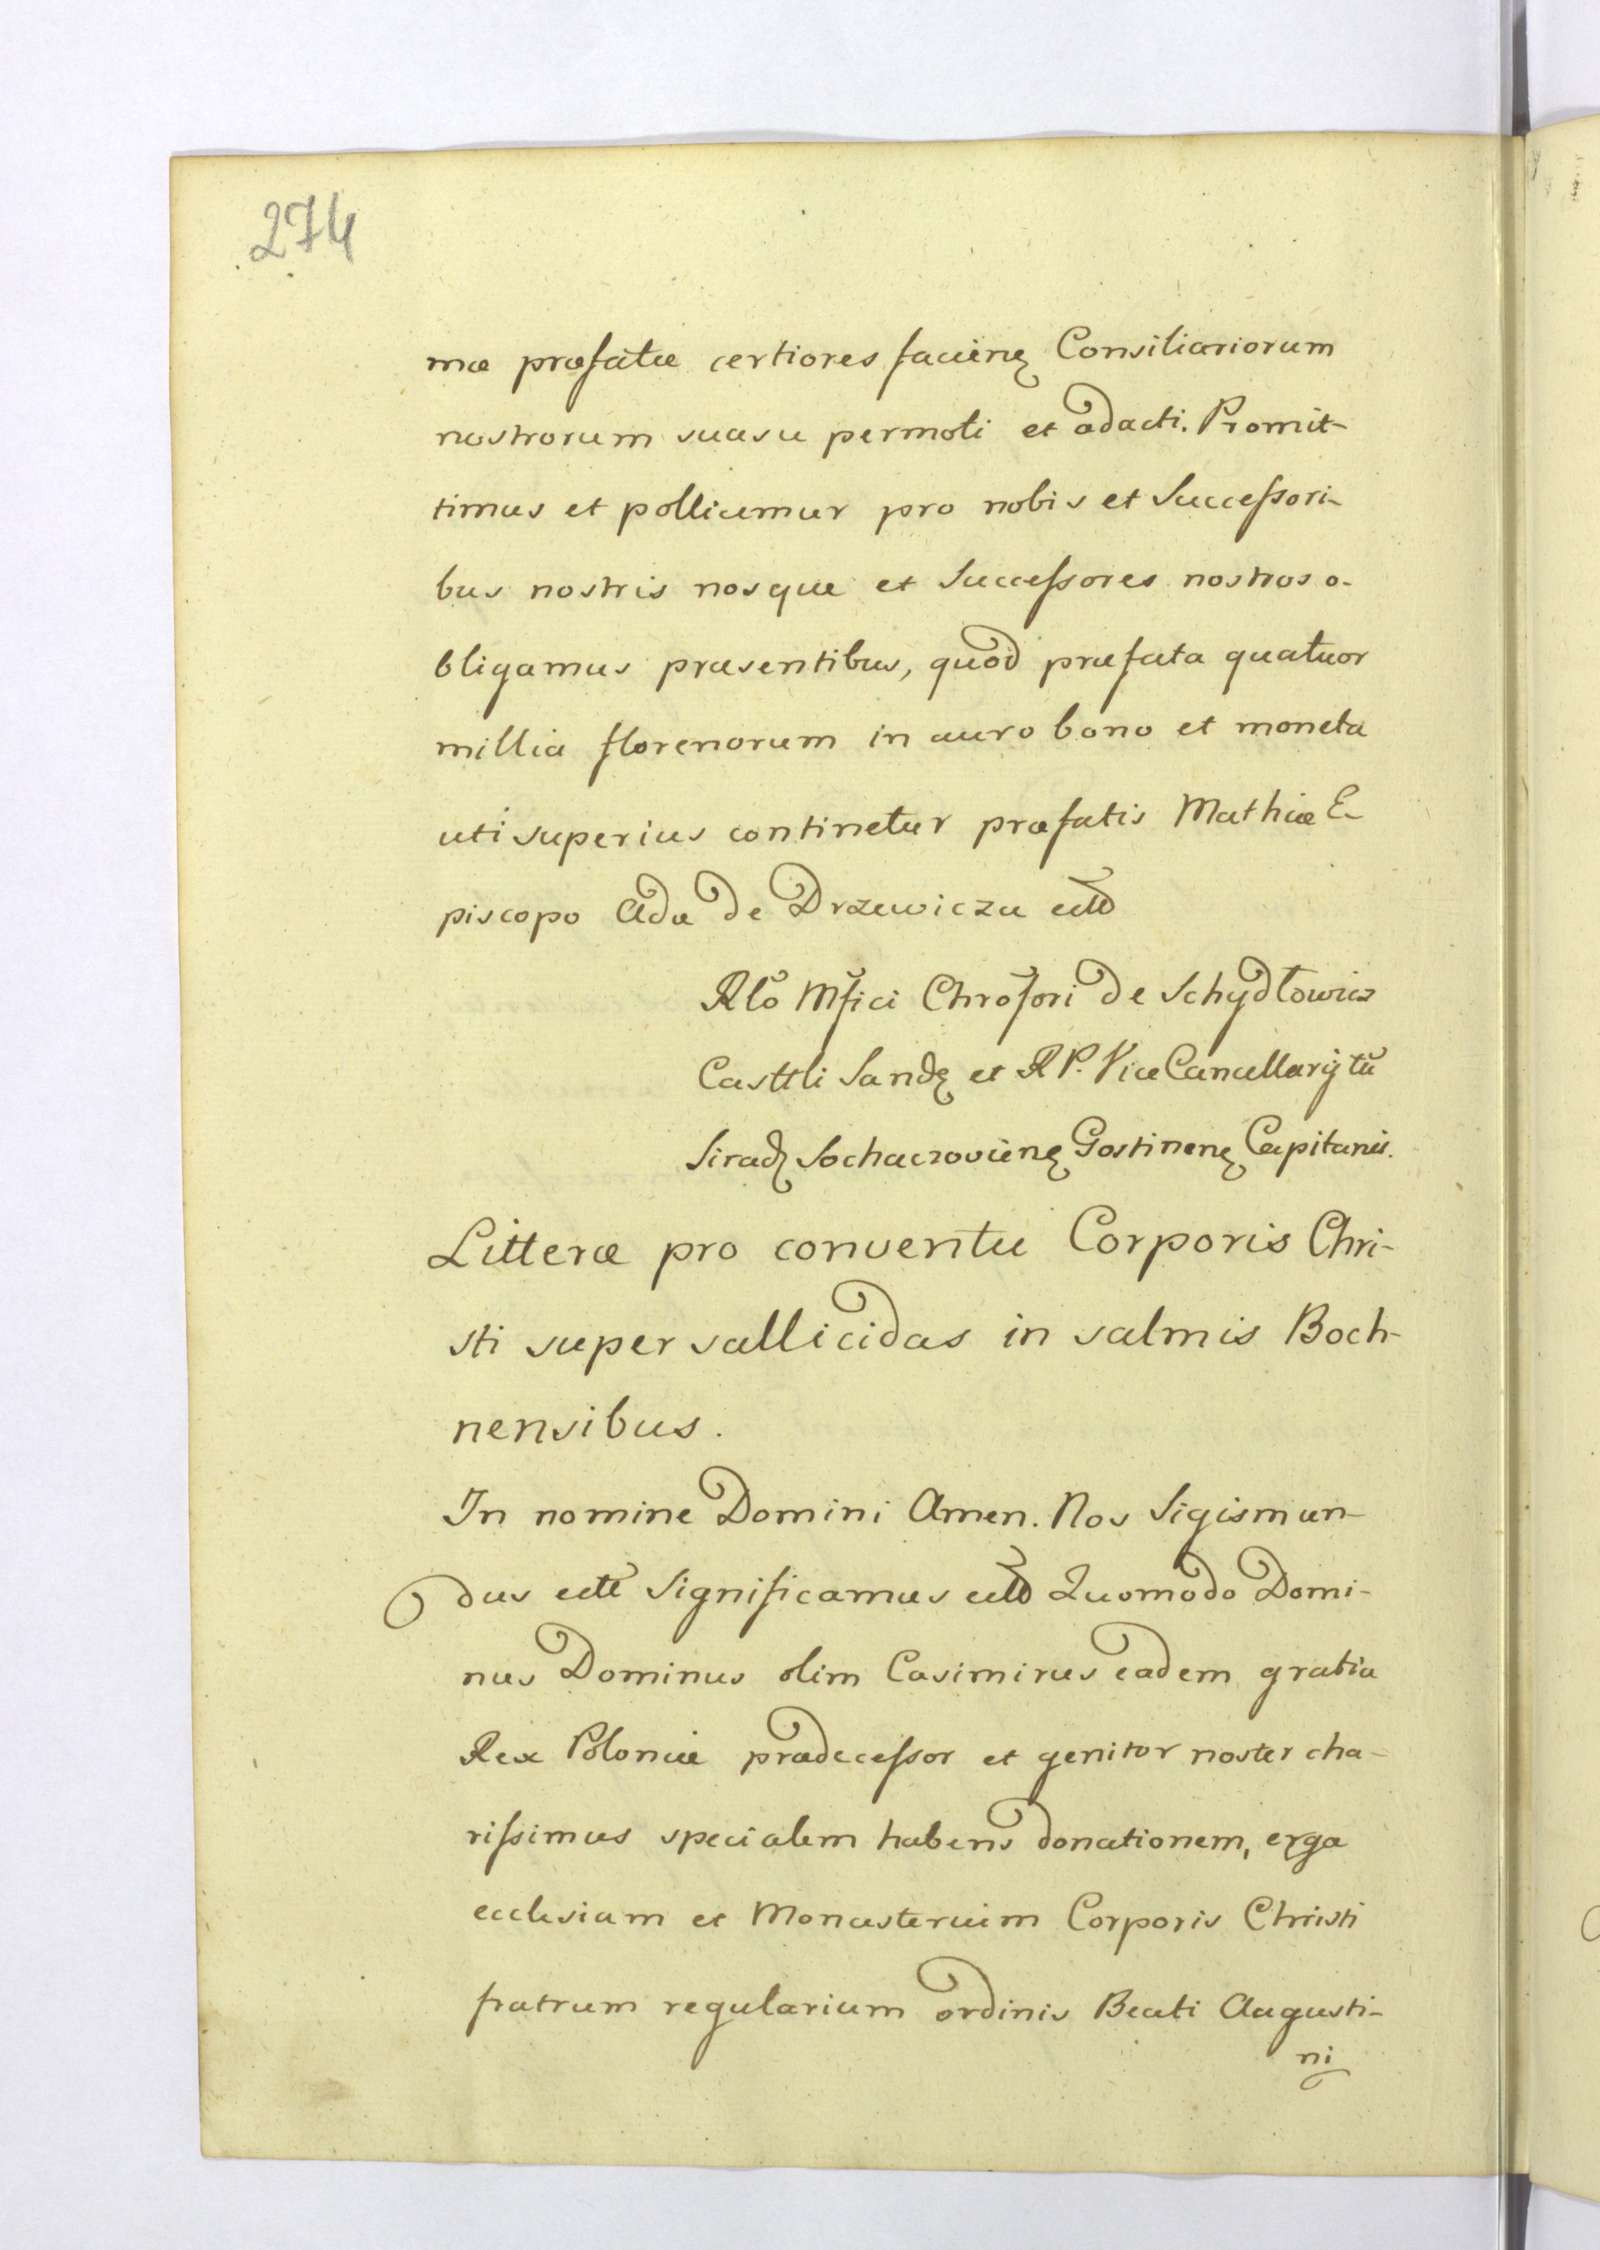 274
mæ præfatæ certiores facien̄ Consiliariorum
nostrorum suasu permoti et adacti. Promit-
timus et pollicemur pro nobis et Successori-
bus nostris nosque et Successores nostros o-
bligamus præsentibus, quod præfata quatuor
millia florenorum in auro bono et moneta
uti superius continetur præfatis Mathiæ E-
piscopo Adæ de Drzewicza
Rlo Mfici Chrofori de Schydlowicz
Casttli Sand et RP. ViceCancellarij tū
Sirad Sochaczovien Gostinen Capitanei.
Litteræ pro conventu Corporis Chri-
sti super sallicidas in salmis Boch-
nensibus.
In nomine Domini Amen. Nos Sigismun-
dus ectt Significamus Quomodo Domi-
nus Dominus olim Casimirus eadem gratia
Rex Poloniæ prædecessor et genitor noster cha-
rissimus specialem habens donationem, erga
ecclesiam et Monasterium Corporis Christi
fratrum regularium ordinis Beati Augusti-
ni